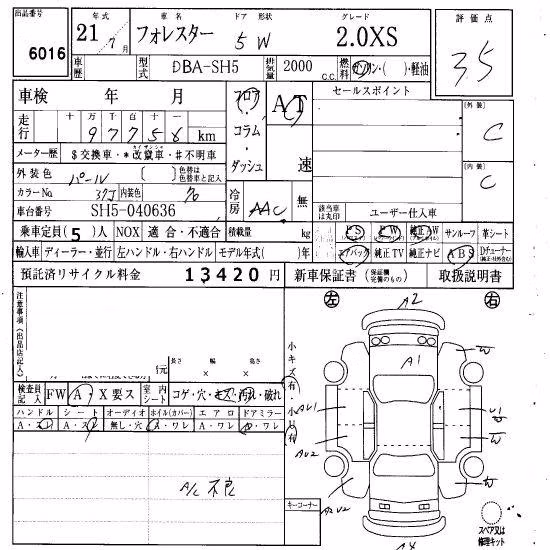 出品番号 6016
年式 車名 ドア 形状 グレード
21 / 7月 フォレスター 5 W 2.0XS
車歴 型式 DBA-SH5 排気量 2000 C.C. 燃料 ガソリン・( )・軽油
評価点
3.5
車検 年 月
フロア・コラム・ダッシュ
AT 速
セールスポイント
走行 十 万 千 百 十
97756 km
メーター歴 $交換車・*改竄車・#不明車
カイザンシャ
外装色 パール ( ) 色替は色替車と記入
カラーNo. 37J 内装色
車台番号 SH5-040636
冷房 AAC 無
該当車は丸印 ユーザー仕入車
外装 C
内装 C
乗車定員(5)人 NOX 適合・不適合 積載量 kg
PS PW 純正AW サンルーフ 革シート
輸入車 ディーラー・並行 左ハンドル・右ハンドル モデル年式( )年
エアバッグ 純正TV 純正ナビ ABS Dチューナー
預託済リサイクル料金 13420円
新車保証書(保証機構完備のもの) 取扱説明書
注意事項(出品店記入)
長さ 幅 高さ
(元 × ×
検査員記入 FW A・X要ス 室内シート コゲ・穴・キズ・汚れ・破れ
ハンドル シート オーディオ ホイル(カバー) エアロ ドアミラー
A・スレ A・スレ 無し・穴 A・ワレ A・ワレ A・ワレ
A/C 不良
小キズ有・小凹有
左 右
A2
A1
AU1
U1
AU2
W
A2 U2
キーコーナー
スペア又は修理キット